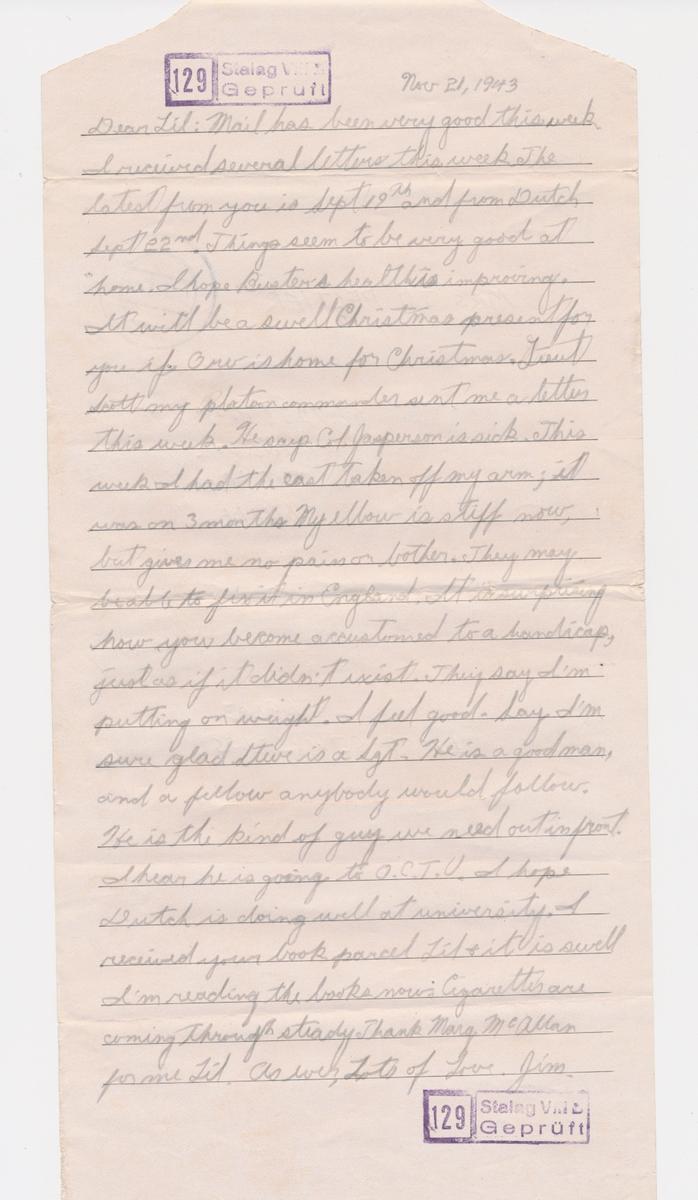 129 Stalag VIII B
Geprüft
Nov 21, 1943
Dear Lil: Mail has been very good this week
I received several letters this week The
latest from you is Sept 19th and from Dutch
Sept 22nd. Things seem to be very good at
home. I hope Busters health is improving.
It will be a swell Christmas present for
you if Orv is home for Christmas. Lieut
Scott my platoon commander sent me a letter
this week. He says Col Jasperson is sick. This
week I had the cast taken off my arm; it
was on 3 months My elbow is stiff now,
but gives me no pain or bother. They may
be able to fix it in England. It is surprising
how you become accustomed to a handicap,
just as if it didn't exist. They say I'm
putting on weight. I feel good. Say I'm
sure glad Steve is a Sgt. He is a good man,
and a fellow anybody would follow.
He is the kind of guy we need out in front.
I hear he is going to O.C.T.U. I hope
Dutch is doing well at university. I
received your book parcel Lil & it is swell
I'm reading the books now: Cigarettes are
coming through steady Thank Marg McAllan
for me Lil. As ever, Lots of Love. Jim.
129 Stalag VIII B
Geprüft